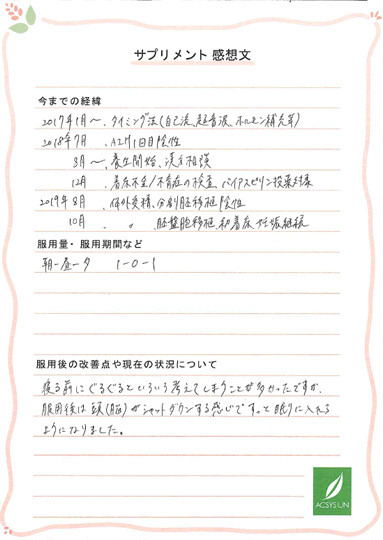 サプリメント 感想文
今までの経緯
2017年1月〜 タイミング法(自己流、超音波、ホルモン補充等)
2018年7月 AIH1回目陰性
8月〜 養生開始、漢方相談
12月 着床不全/不育症の検査、バイアスピリン投薬対象
2019年8月 体外受精、分割胚移植陰性
10月 〃 胚盤胞移植、初着床、妊娠継続
服用量・服用期間など
朝-昼-夕 1-0-1
服用後の改善点や現在の状況について
寝る前にぐるぐるといろいろ考えてしまうことが多かったですが、
服用後は頭(脳)がシャットダウンする感じですっと眠りに入れる
ようになりました。
ACSYSUN